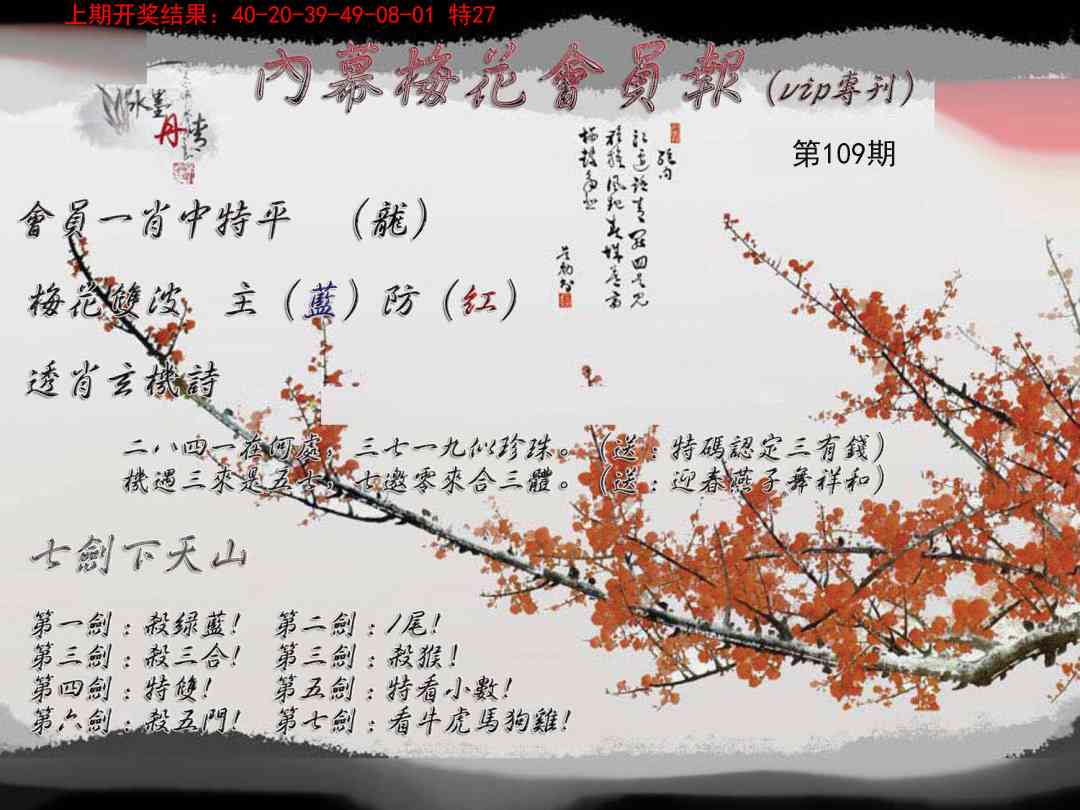 上期开奖结果：40-20-39-49-08-01 特27
內幕梅花會員報（vip專刊）
水墨丹青
第109期
會員一肖中特平 （龍）
梅花雙波 主（藍）防（红）
透肖玄機詩
二八四一在何處，三七一九似珍珠。（送：特碼認定三有錢）
機遇三來是五七，七邀零來合三體。（送：迎春燕子舞祥和）
七劍下天山
第一劍：殺绿藍！ 第二劍：1尾！
第三劍：殺三合！ 第三劍：殺猴！
第四劍：特雙！ 第五劍：特看小數！
第六劍：殺五門！ 第七劍：看牛虎馬狗雞！